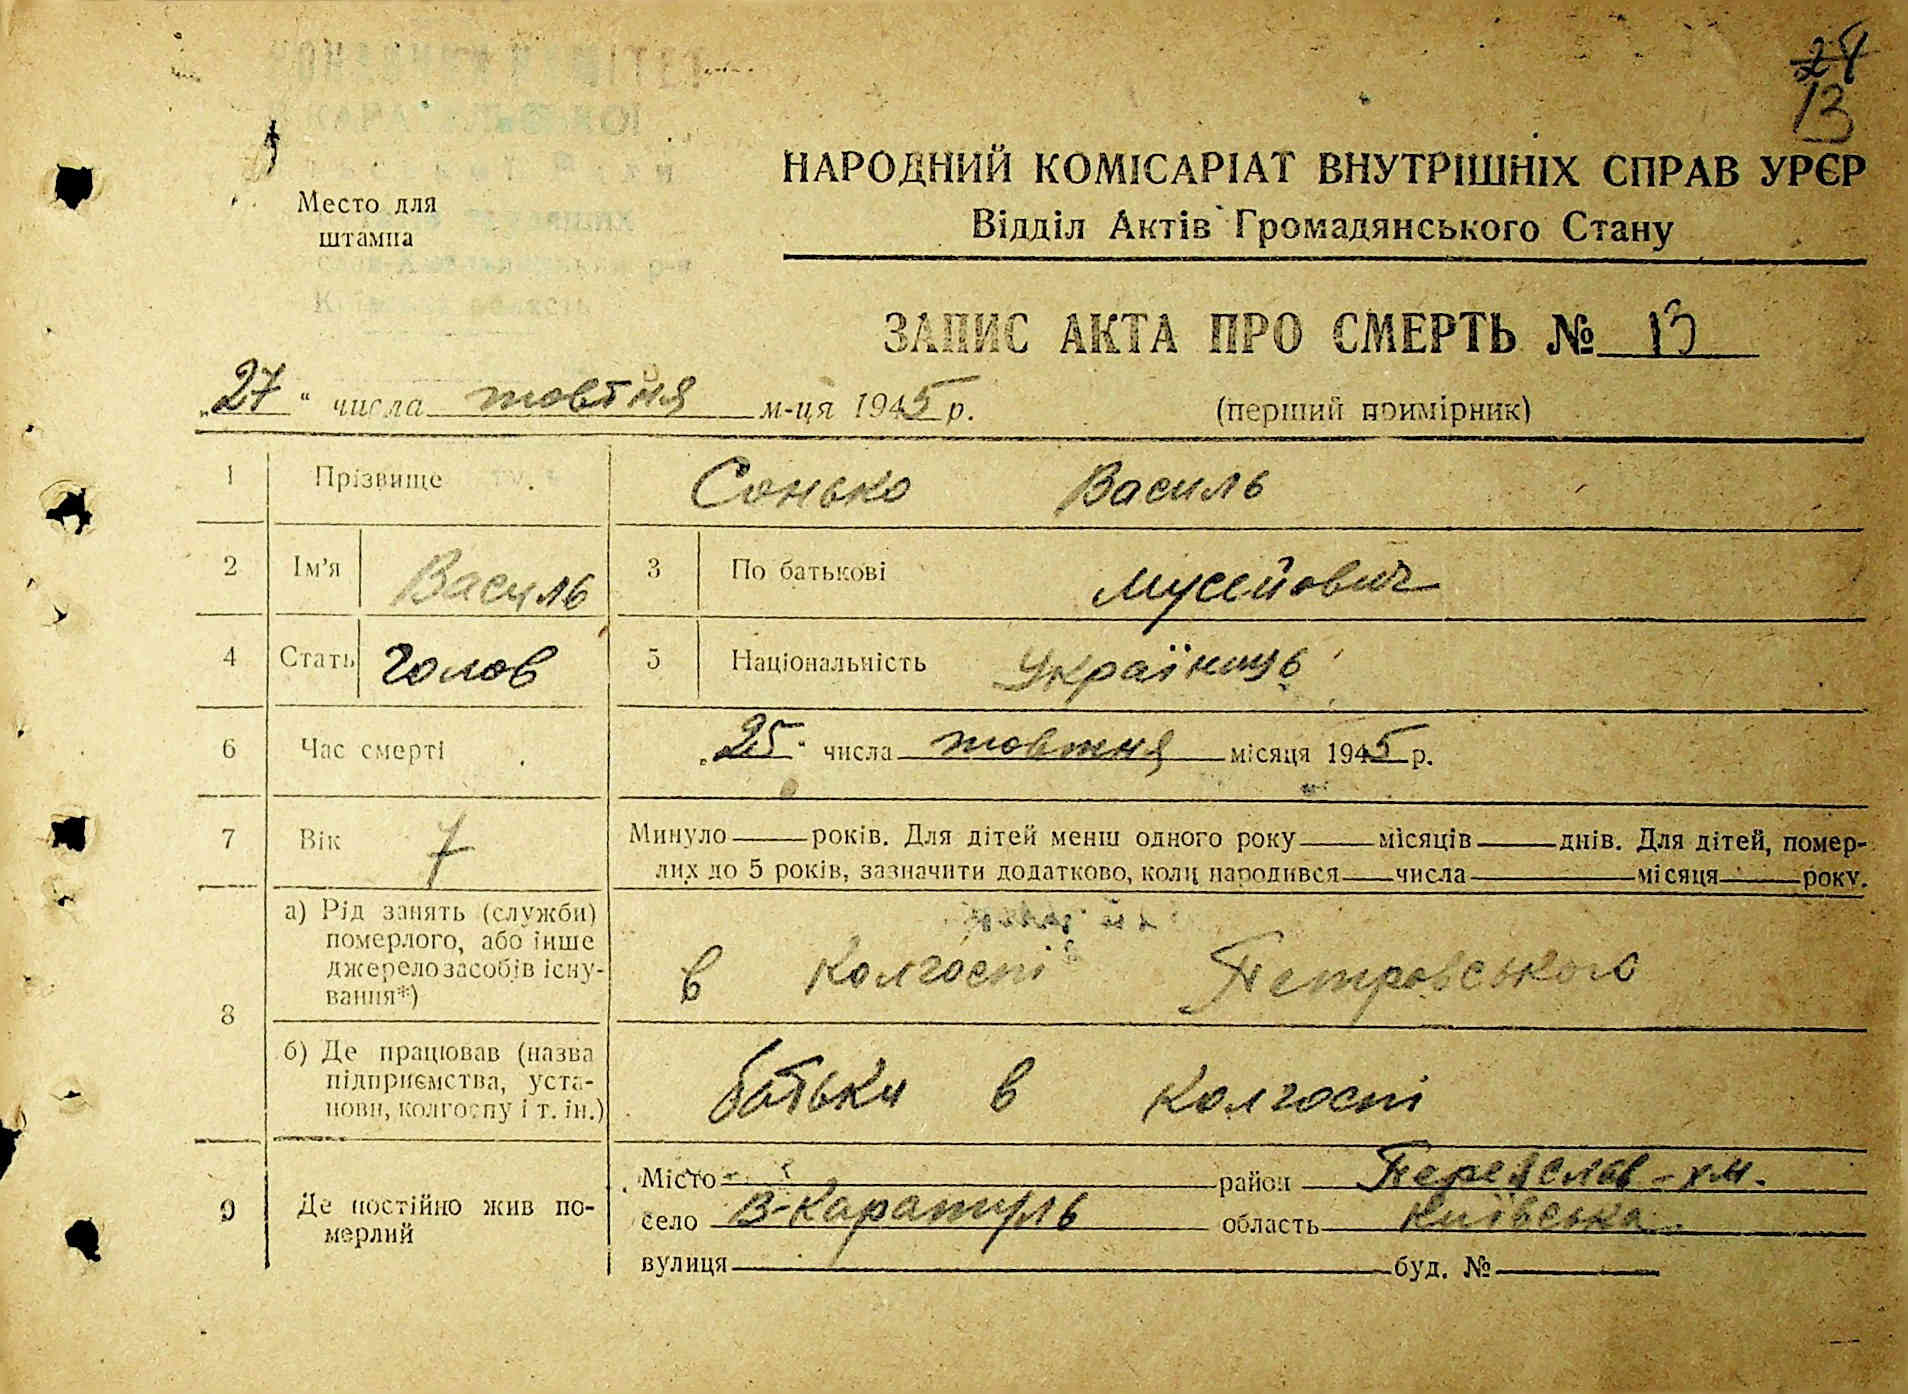 24
13
НАРОДНИЙ КОМІСАРІАТ ВНУТРІШНІХ СПРАВ УРЄР
Відділ Актів Громадянського Стану
Место для
штампа
ЗАПИС АКТА ПРО СМЕРТЬ № 13
„27“ числа жовтня м-ця 1945 р.
(перший примірник)
1 Прізвище Сонько Василь
2 Ім’я Василь 3 По батькові Мусейович
4 Стать Голов 5 Національність Українець
6 Час смерті „25“ числа жовтня місяця 1945 р.
7 Вік 7 Минуло років. Для дітей менш одного року місяців днів. Для дітей, помер-
лих до 5 років, зазначити додатково, коли народився числа місяця року.
8 а) Рід занять (служби)
померлого, або інше
джерело засобів існу-
вання*)
в колгоспі Петровського
б) Де працював (назва
підприємства, уста-
нови, колгоспу і т. ін.)
батьки в колгоспі
9 Де постійно жив по-
мерлий
Місто район Переяслав-хм.
село В-Каратуль область Київська
вулиця буд. №